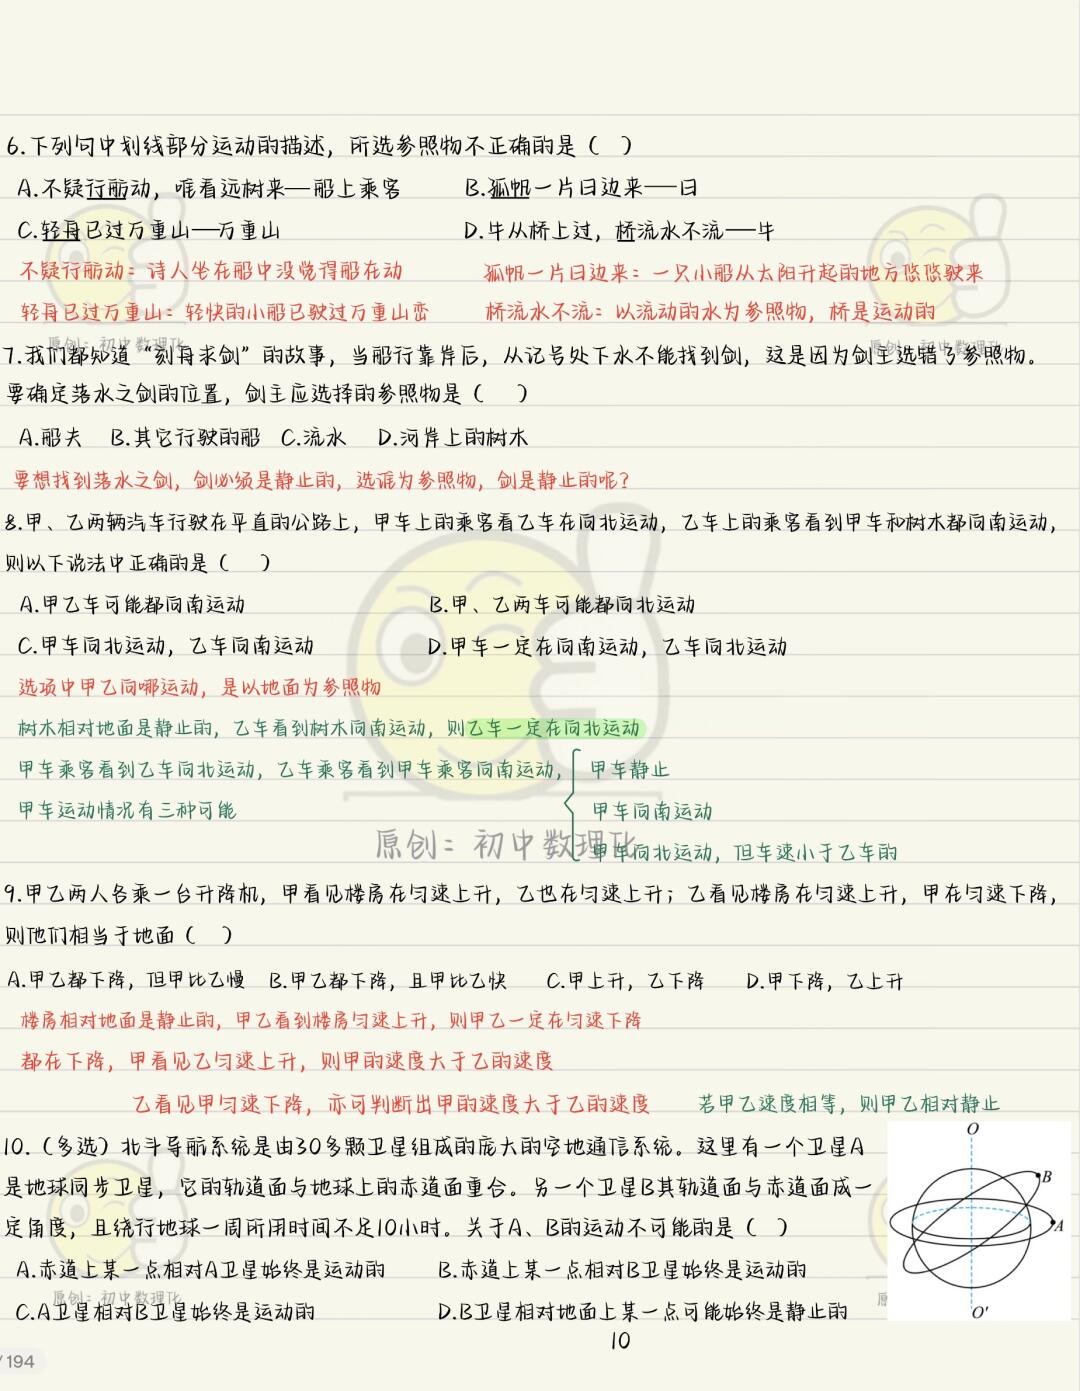 6.下列句中划线部分运动的描述，所选参照物不正确的是（ ）
A.不疑行船动，唯看远树来—船上乘客 B.孤帆一片日边来——日
C.轻舟已过万重山——万重山 D.牛从桥上过，桥流水不流——牛
不疑行船动：诗人坐在船中没觉得船在动 孤帆一片日边来：一只小船从太阳升起的地方悠悠驶来
轻舟已过万重山：轻快的小船已驶过万重山峦 桥流水不流：以流动的水为参照物，桥是运动的
原创：初中数理化 原创：初中数理化
7.我们都知道“刻舟求剑”的故事，当船行靠岸后，从记号处下水不能找到剑，这是因为剑主选错了参照物。
要确定落水之剑的位置，剑主应选择的参照物是（ ）
A.船夫 B.其它行驶的船 C.流水 D.河岸上的树木
要想找到落水之剑，剑必须是静止的，选谁为参照物，剑是静止的呢？
8.甲、乙两辆汽车行驶在平直的公路上，甲车上的乘客看乙车在向北运动，乙车上的乘客看到甲车和树木都向南运动，
则以下说法中正确的是（ ）
A.甲乙车可能都向南运动 B.甲、乙两车可能都向北运动
C.甲车向北运动，乙车向南运动 D.甲车一定在向南运动，乙车向北运动
选项中甲乙向哪运动，是以地面为参照物
树木相对地面是静止的，乙车看到树木向南运动，则乙车一定在向北运动
甲车乘客看到乙车向北运动，乙车乘客看到甲车乘客向南运动， 甲车静止
甲车运动情况有三种可能 甲车向南运动
原创：初中数理化 甲车向北运动，但车速小于乙车的
9.甲乙两人各乘一台升降机，甲看见楼房在匀速上升，乙也在匀速上升；乙看见楼房在匀速上升，甲在匀速下降，
则他们相当于地面（ ）
A.甲乙都下降，但甲比乙慢 B.甲乙都下降，且甲比乙快 C.甲上升，乙下降 D.甲下降，乙上升
楼房相对地面是静止的，甲乙看到楼房匀速上升，则甲乙一定在匀速下降
都在下降，甲看见乙匀速上升，则甲的速度大于乙的速度
乙看见甲匀速下降，亦可判断出甲的速度大于乙的速度 若甲乙速度相等，则甲乙相对静止
10.（多选）北斗导航系统是由30多颗卫星组成的庞大的空地通信系统。这里有一个卫星A
是地球同步卫星，它的轨道面与地球上的赤道面重合。另一个卫星B其轨道面与赤道面成一
定角度，且绕行地球一周所用时间不足10小时。关于A、B的运动不可能的是（ ）
A.赤道上某一点相对A卫星始终是运动的 B.赤道上某一点相对B卫星始终是运动的
原创：初中数理化 原
C.A卫星相对B卫星始终是运动的 D.B卫星相对地面上某一点可能始终是静止的
O
B
A
O'
10
/194